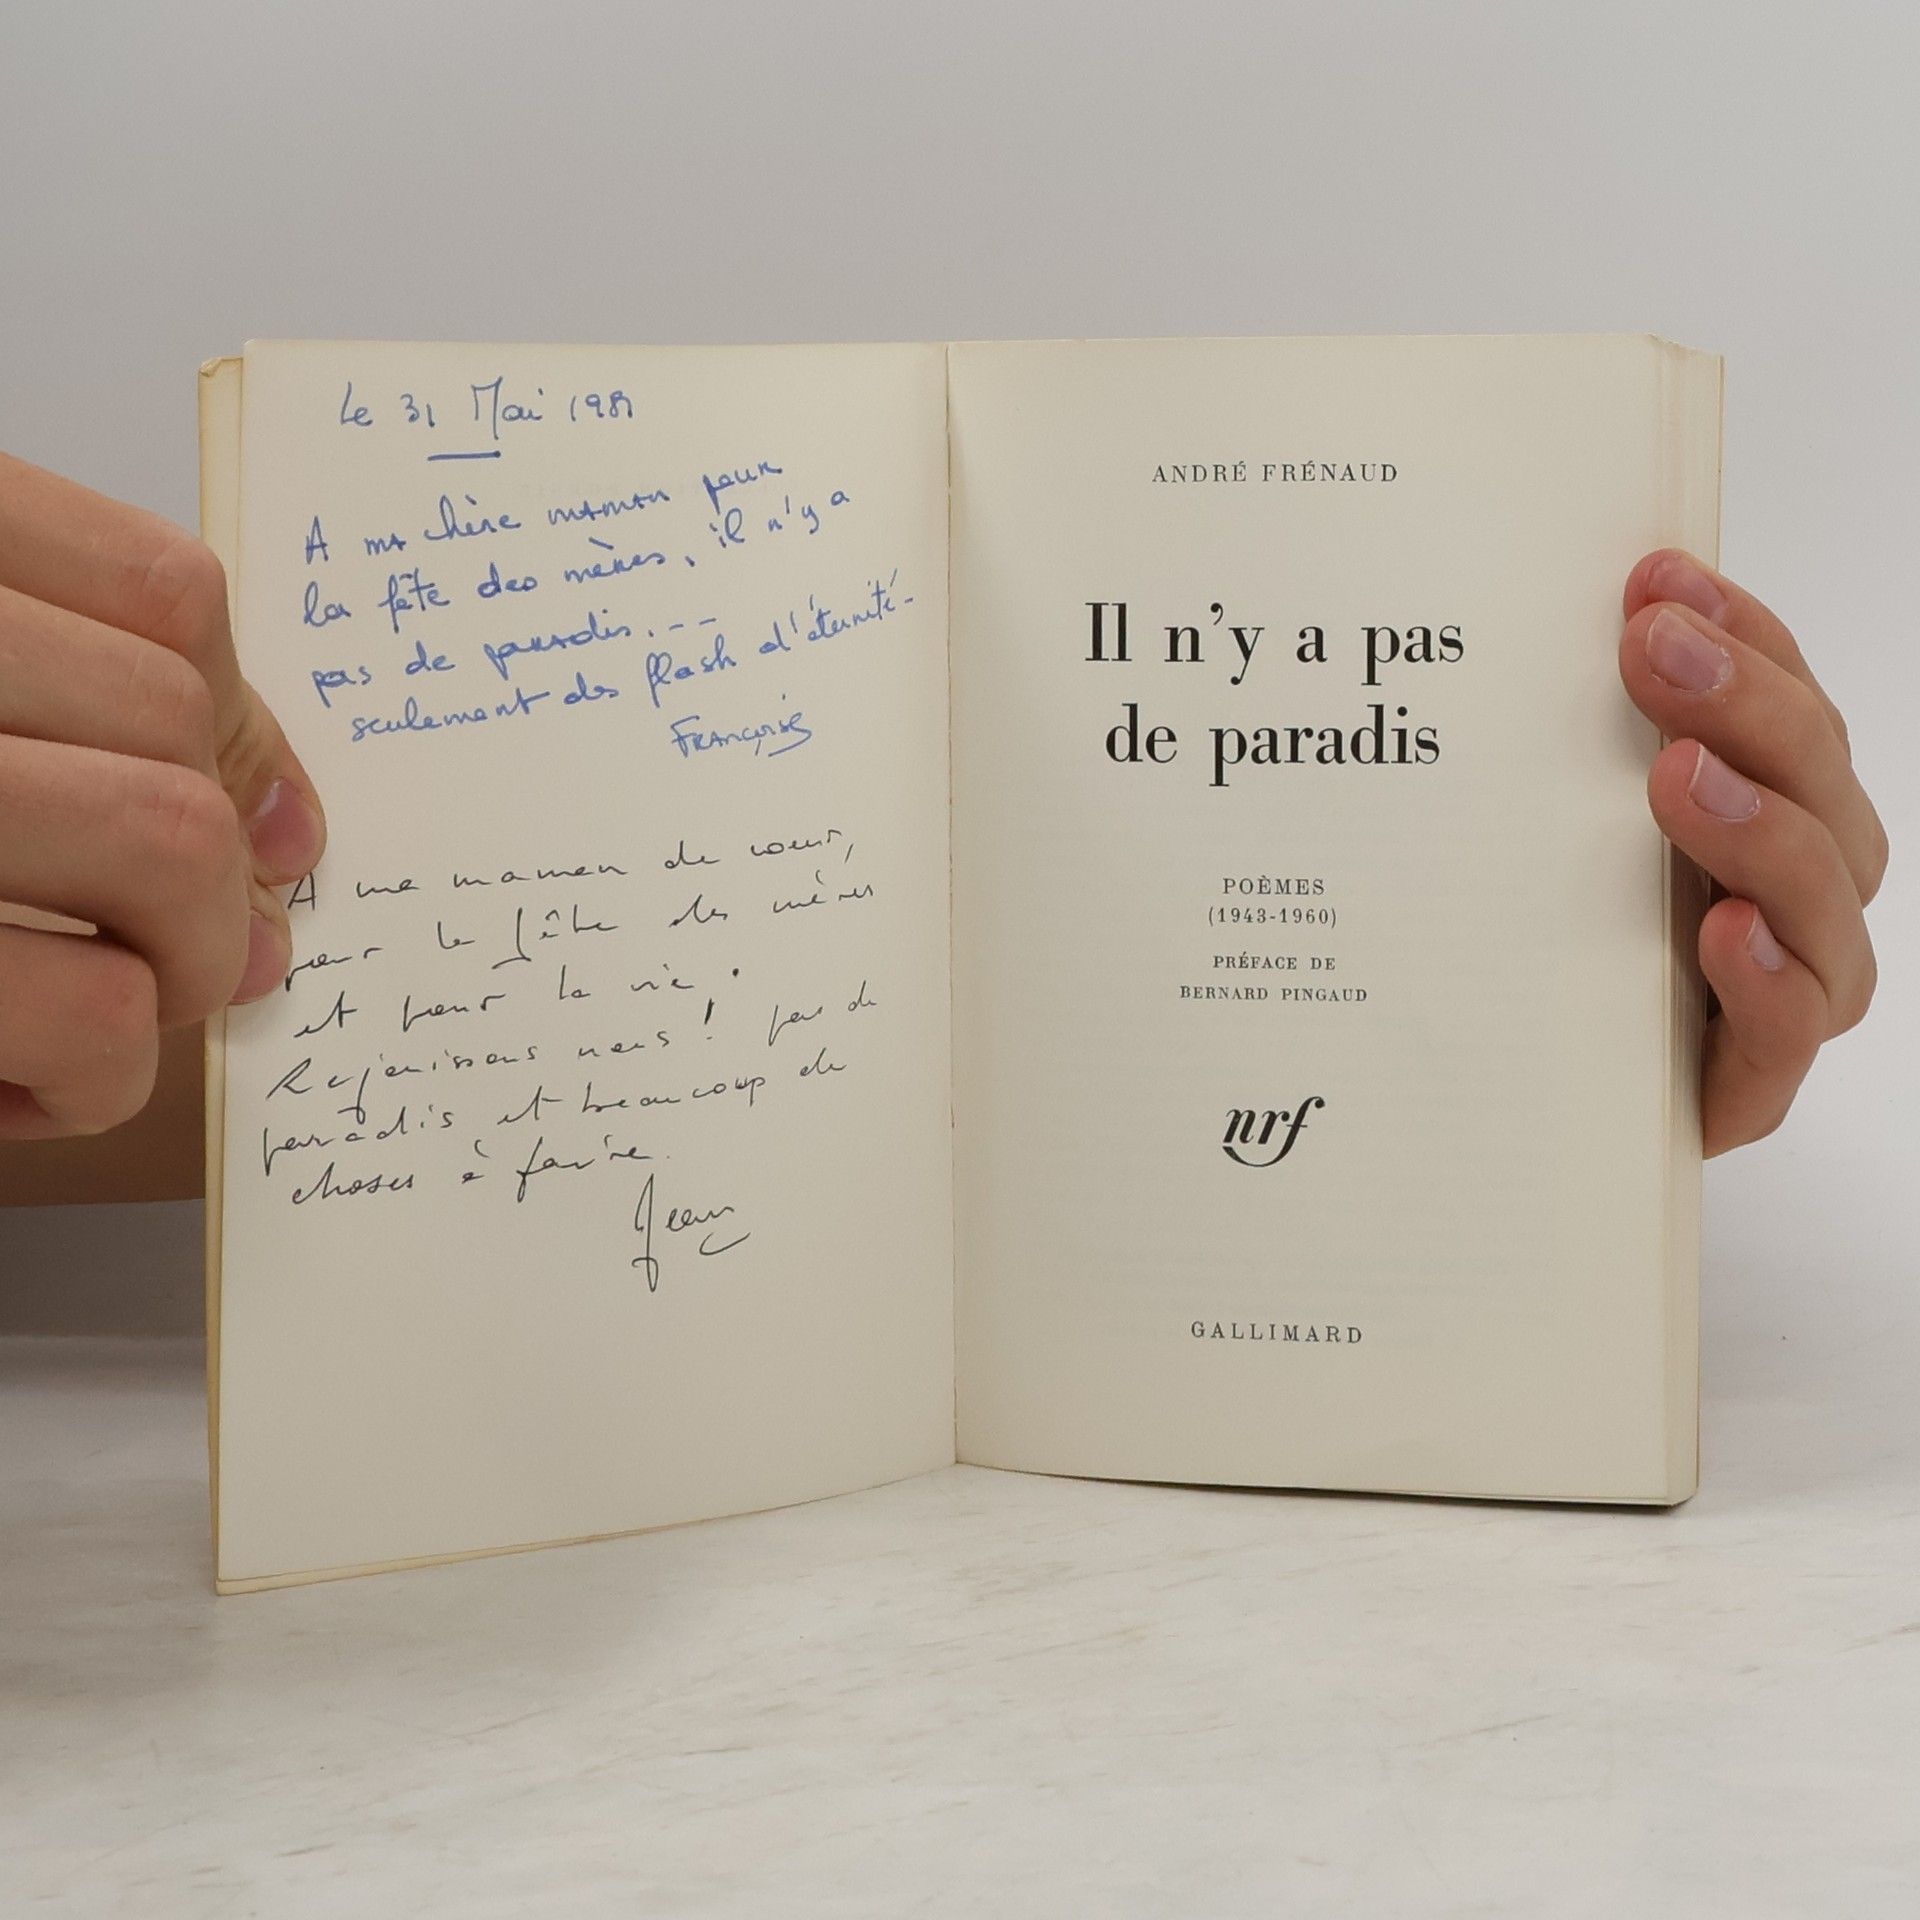 Le 31 Mai 1981
A ma chère maman pour
la fête des mères, il n'y a
pas de paradis. --
seulement des flash d'éternité-
Françoise
A ma maman de coeur,
pour la fête des mères
et pour la vie.
Rejouissons nous ! pas de
paradis et beaucoup de
choses à faire.
Jean
ANDRÉ FRÉNAUD
Il n'y a pas
de paradis
POÈMES
(1943-1960)
PRÉFACE DE
BERNARD PINGAUD
nrf
GALLIMARD